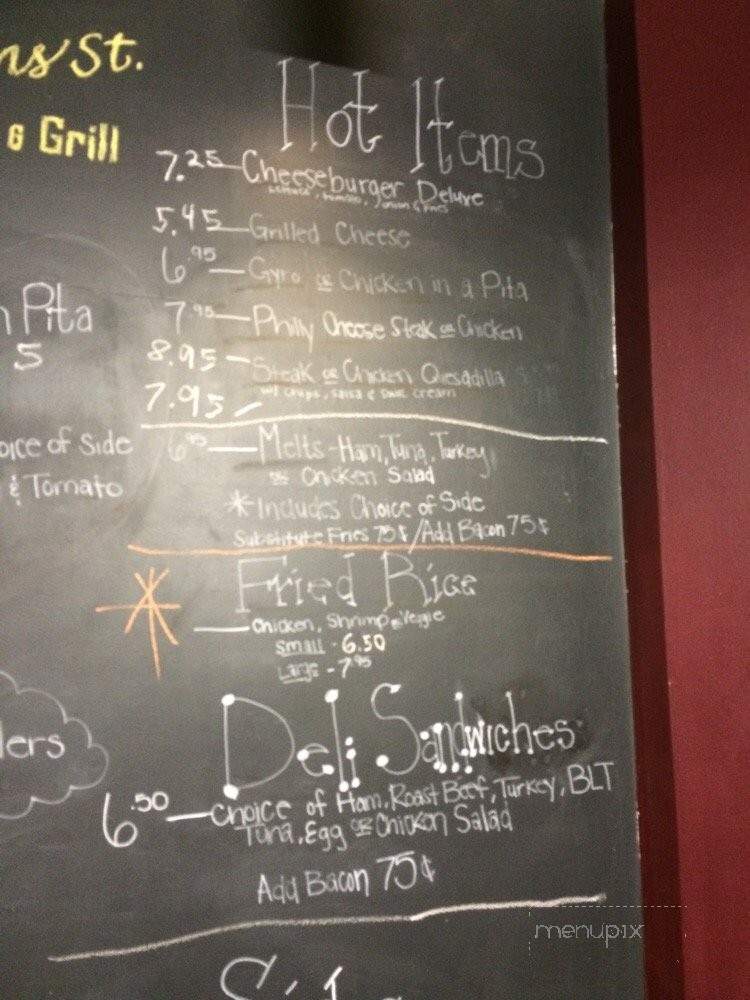 ns St.
& Grill
Hot Items
7.25 — Cheeseburger Deluxe
lettuce, tomato, onion & fries
5.45 — Grilled Cheese
6.95 — Gyro or Chicken in a Pita
n Pita
5
7.95 — Philly Cheese Steak or Chicken
8.95 — Steak or Chicken Quesadilla
7.95 — chips, salsa & sour cream
oice of Side
& Tomato
6.95 — Melts - Ham, Tuna, Turkey
or Chicken Salad
*Includes Choice of Side
Substitute Fries 75¢/Add Bacon 75¢
Fried Rice
— Chicken, Shrimp or Veggie
Small - 6.50
Large - 7.95
lers
Deli Sandwiches
6.50 — Choice of Ham, Roast Beef, Turkey, BLT
Tuna, Egg or Chicken Salad
Add Bacon 75¢
menupix